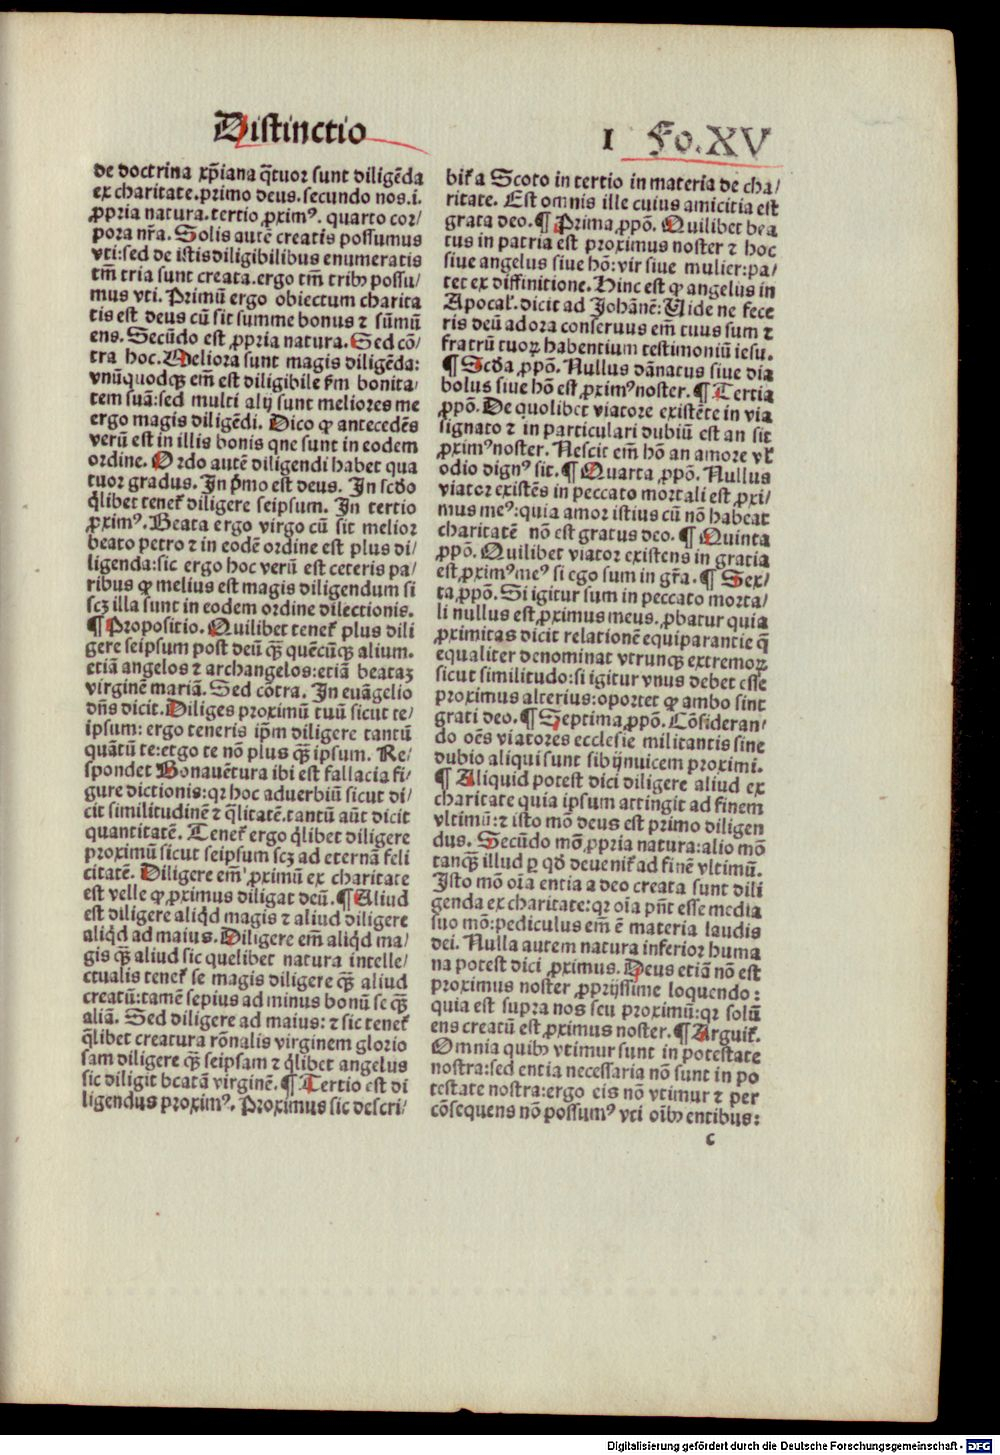 Distinctio I Fo.XV
de doctrina xp̄iana q̄tuor sunt diligēda
ex charitate.primo deus.secundo nos.i.
ꝓpria natura.tertio ꝓximꝰ. quarto cor/
pora nr̄a. Solis autē creatis possumus
vti:sed de istis diligibilibus enumeratis
tm̄ tria sunt creata.ergo tm̄ tribꝫ possu/
mus vti. Primū ergo obiectum charita
tis est deus cū sit summe bonus ⁊ sūmū
ens. Secūdo est ꝓpria natura. Sed cō/
tra hoc. Meliora sunt magis diligēda:
vnūquodqꝫ em̄ est diligibile ẜm bonita/
tem suā:sed multi alij sunt meliores me
ergo magis diligēdi. Dico ꝙ antecedēs
verū est in illis bonis qne sunt in eodem
ordine. Ordo autē diligendi habet qua
tuor gradus. In p̄mo est deus. In scd̄o
q̄libet tenet᷑ diligere seipsum. In tertio
ꝓximꝰ. Beata ergo virgo cū sit melior
beato petro ⁊ in eodē ordine est plus di/
ligenda:sic ergo hoc verū est ceteris pa/
ribus ꝙ melius est magis diligendum si
scꝫ illa sunt in eodem ordine dilectionis.
¶ Propositio. Quilibet tenet᷑ plus dili
gere seipsum post deū qꝫ̄ quēcūqꝫ alium.
etiā angelos ⁊ archangelos:etiā beataꝫ
virginē mariā. Sed cōtra. In euāgelio
dn̄s dicit. Diliges proximū tuū sicut te/
ipsum: ergo teneris ip̄m diligere tantū
quātū te:ergo te nō plus qꝫ̄ ipsum. Re/
spondet Bonauētura ibi est fallacia fi/
gure dictionis:qꝛ hoc aduerbiū sicut di/
cit similitudinē ⁊ q̄litatē.tantū aūt dicit
quantitatē. Tenet᷑ ergo q̄libet diligere
proximū sicut seipsum scꝫ ad eternā feli
citatē. Diligere em̄ ꝓximū ex charitate
est velle ꝙ ꝓximus diligat deū. ¶ Aliud
est diligere aliq̄d magis ⁊ aliud diligere
aliq̄d ad maius. Diligere em̄ aliq̄d ma/
gis qꝫ̄ aliud sic quelibet natura intelle/
ctualis tenet᷑ se magis diligere qꝫ̄ aliud
creatū:tamē sepius ad minus bonū se qꝫ̄
aliā. Sed diligere ad maius: ⁊ sic tenet᷑
q̄libet creatura rōnalis virginem glorio
sam diligere qꝫ̄ seipsam ⁊ q̄libet angelus
sic diligit beatā virginē. ¶ Tertio est di
ligendus proximꝰ. Proximus sic descri/
bit᷑ a Scoto in tertio in materia de cha/
ritate. Est omnis ille cuius amicitia est
grata deo. ¶ Prima ꝓpō. Quilibet bea
tus in patria est proximus noster ⁊ hoc
siue angelus siue hō: vir siue mulier:pa/
tet ex diffinitione. Hinc est ꝙ angelus in
Apocal. dicit ad Johānē: Vide ne fece
ris deū adora conseruus em̄ tuus sum ⁊
fratrū tuoꝝ habentium testimoniū iesu.
¶ Scd̄a ꝓpō. Nullus dānatus siue dia
bolus siue hō est ꝓximꝰ noster. ¶ Tertia
ꝓpō. De quolibet viatore existēte in via
signato ⁊ in particulari dubiū est an sit
ꝓximꝰ noster. Nescit em̄ hō an amore vl̓
odio dignꝰ sit. ¶ Quarta ꝓpō. Nullus
viator existēs in peccato mortali est ꝓxi/
mus meꝰ:quia amor istius cū nō habeat
charitatē nō est gratus deo. ¶ Quinta
ꝓpō. Quilibet viator existens in gratia
est ꝓximꝰ meꝰ si ego sum in gr̄a. ¶ Sex/
ta ꝓpō. Si igitur sum in peccato morta/
li nullus est ꝓximus meus. ꝓbatur quia
ꝓximitas dicit relationē equiparantie q̄
equaliter denominat vtrunqꝫ extremoꝝ
sicut similitudo:si igitur vnus debet esse
proximus alterius:oportet ꝙ ambo sint
grati deo. ¶ Septima ꝓpō. Cōsideran/
do oēs viatores ecclesie militantis sine
dubio aliqui sunt sibijnuicem proximi.
¶ Aliquid potest dici diligere aliud ex
charitate quia ipsum attingit ad finem
vltimū:⁊ isto mō deus est primo diligen
dus. Secūdo mō ꝓpria natura:alio mō
tanqꝫ̄ illud ꝑ qd̄ deuenit᷑ ad finē vltimū.
Isto mō oīa entia a deo creata sunt dili
genda ex charitate:qꝛ oīa pn̄t esse media
suo mō:pediculus em̄ ē materia laudis
dei. Nulla autem natura inferior huma
na potest dici ꝓximus. Deus etiā nō est
proximus noster ꝓprijssime loquendo:
quia est supra nos seu proximū:qꝛ solū
ens creatū est ꝓximus noster. ¶ Arguit᷑.
Omnia quibꝫ vtimur sunt in potestate
nostra:sed entia necessaria nō sunt in po
testate nostra:ergo eis nō vtimur ⁊ per
cōsequens nō possumꝰ vti oībꝫ entibus:
c
Digitalisierung gefördert durch die Deutsche Forschungsgemeinschaft - DFG